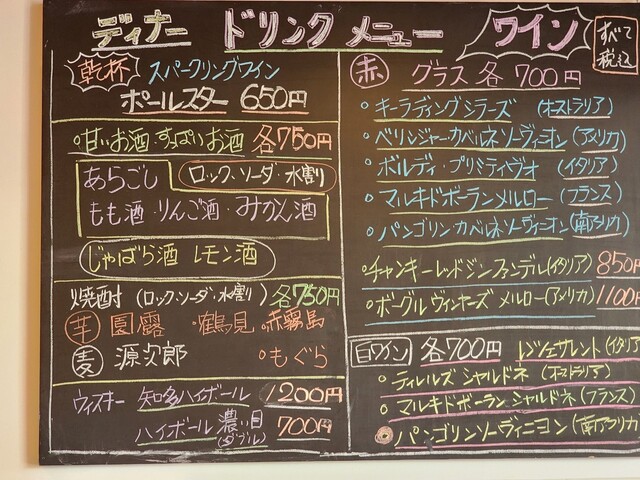 ディナー ドリンク メニュー
乾杯 スパークリングワイン
ポールスター 650円
・甘いお酒・すっぱいお酒 各750円
あらごし ロック・ソーダ・水割
もも酒・りんご酒・みかん酒
じゃばら酒 レモン酒
焼酎 (ロック・ソーダ・水割) 各750円
芋 圓露 ・鶴見 ・赤霧島
麦 源次郎 ・もぐら
ウィスキー 知多ハイボール 1200円
ハイボール 濃い目 (ダブル) 700円
ワイン
すべて
税込
赤 グラス 各700円
・キーラディングシラーズ (オーストラリア)
・ベリンジャーカベルネソーヴィニオン (アメリカ)
・ボルディ・プリミティヴォ (イタリア)
・マルキドボーランメルロー (フランス)
・パンゴリンカベルネソーヴィニオン (南アフリカ)
・チャンキーレッドジンファンデル (イタリア) 850円
・ボーグルヴィンヤーズメルロー (アメリカ) 1100円
白ワイン 各700円 レジェサレント (イタリア
・ティレルズシャルドネ (オーストラリア)
・マルキドボーランシャルドネ (フランス)
パンゴリンソーヴィニヨン (南アフリカ